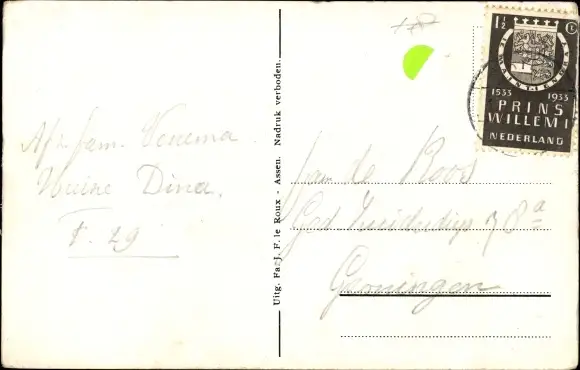 Afz. fam. Venema
Dina.
29
Uitg. Fa. J. F. le Roux - Assen. Nadruk verboden.
1½
JE MAINTIENDRAI
1533 1933
PRINS
WILLEM I
NEDERLAND
Fam. de Roos
Ged. 78a
Groningen